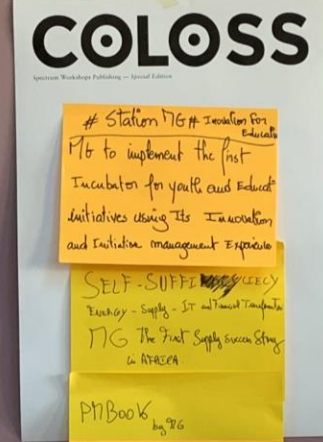 COLOSS
Spectrum Workshops Publishing — Special Edition
# Station MG # Inovation for
Educati
MG to implement the first
Incubator for youth and Educati
initiatives using Its Innovation
and Initiative management Experience
SELF-SUFFI CIECY
ENERGY - Supply - IT and Transformation
MG The First Supply success Story
in AFRICA
PMBOOK
by MG